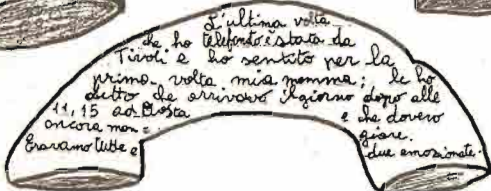 L'ultima volta
che ho telefonato è stata da
Tivoli e ho sentito per la
prima volta mia mamma; le ho
detto che arrivavo il giorno dopo alle
11,15 ad Aosta e che dovevo
ancora man= giare.
Eravamo tutte e due emozionate.